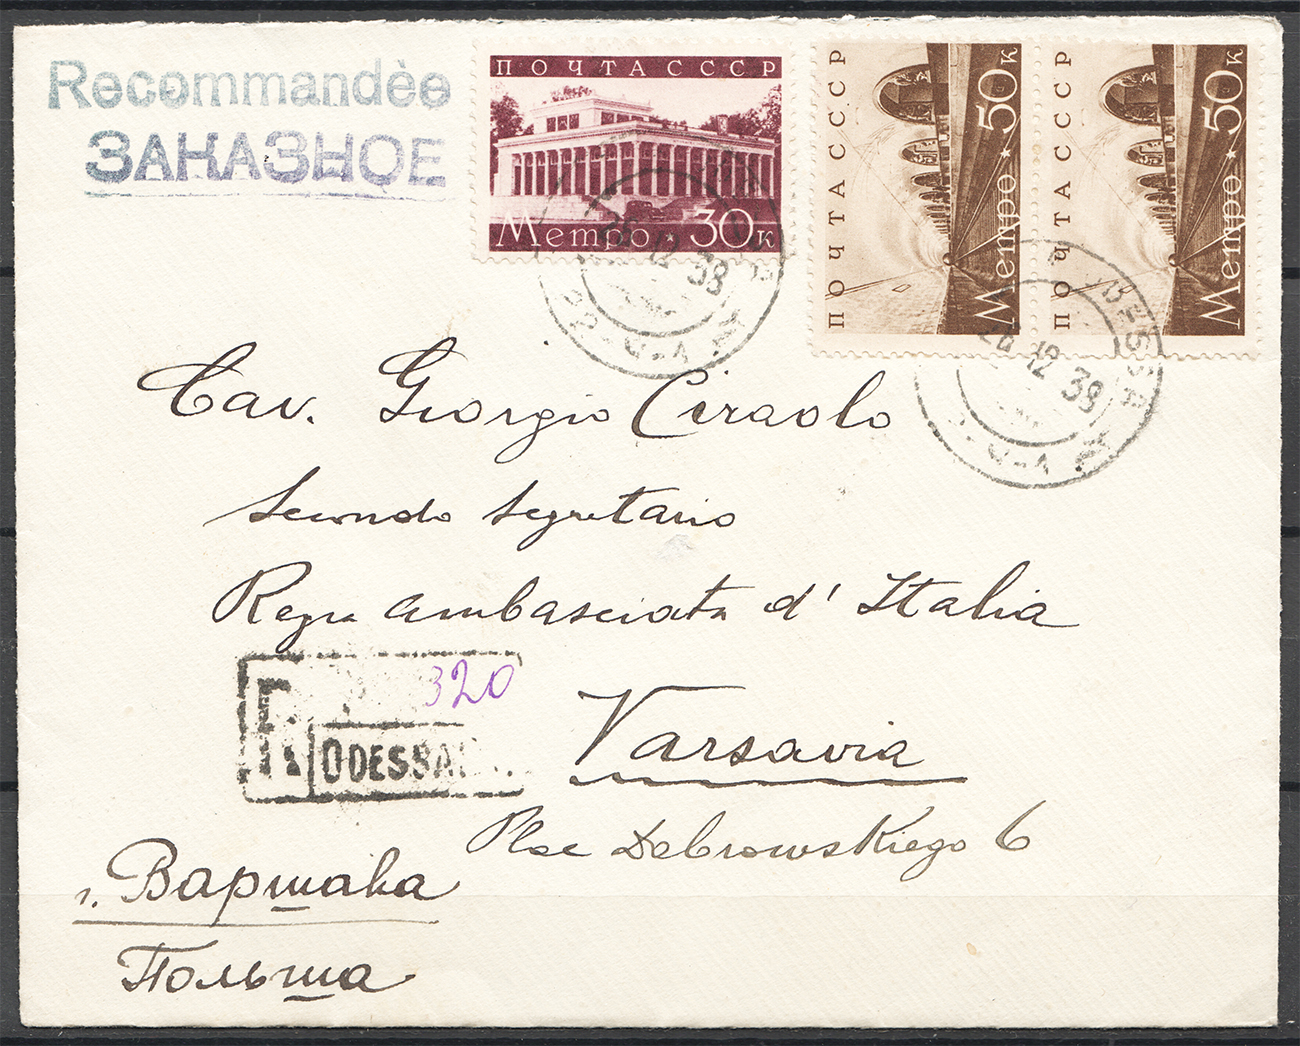 Recommandèe
ЗАКАЗНОЕ
ПОЧТА СССР
Метро 30к
ПОЧТА СССР
Метро ★ 50к
ПОЧТА СССР
Метро ★ 50к
12 38
ODESSA
12 38
Cav. Giorgio Ciraolo
Secondo Segretario
Regia Ambasciata d'Italia
R 320
ODESSA
Varsavia
Plac Dabrowskiego 6
г. Варшава
Польша